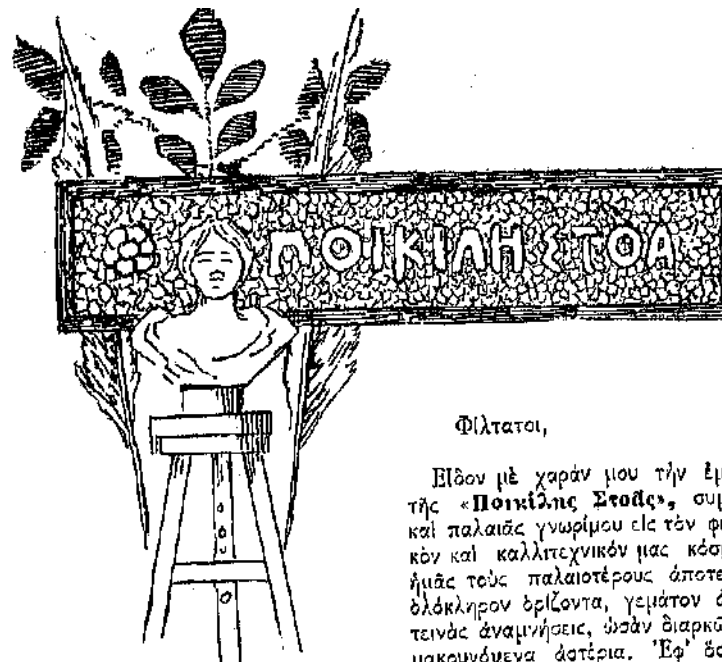 ΠΟΙΚΙΛΗ ΣΤΟΑ
Φίλτατοι,
Εἶδον μὲ χαράν μου τήν
τῆς «Ποικίλης Στοᾶς»,
καὶ παλαιᾶς γνωρίμου εἰς τόν
κὸν καὶ καλλιτεχνικόν μας
ἡμᾶς τοὺς παλαιοτέρους
ὁλόκληρον ὁρίζοντα, γεμάτον
τεινὰς ἀναμνήσεις, ὡσὰν
μακρυνόμενα ἀστέρια. Ἐφ'